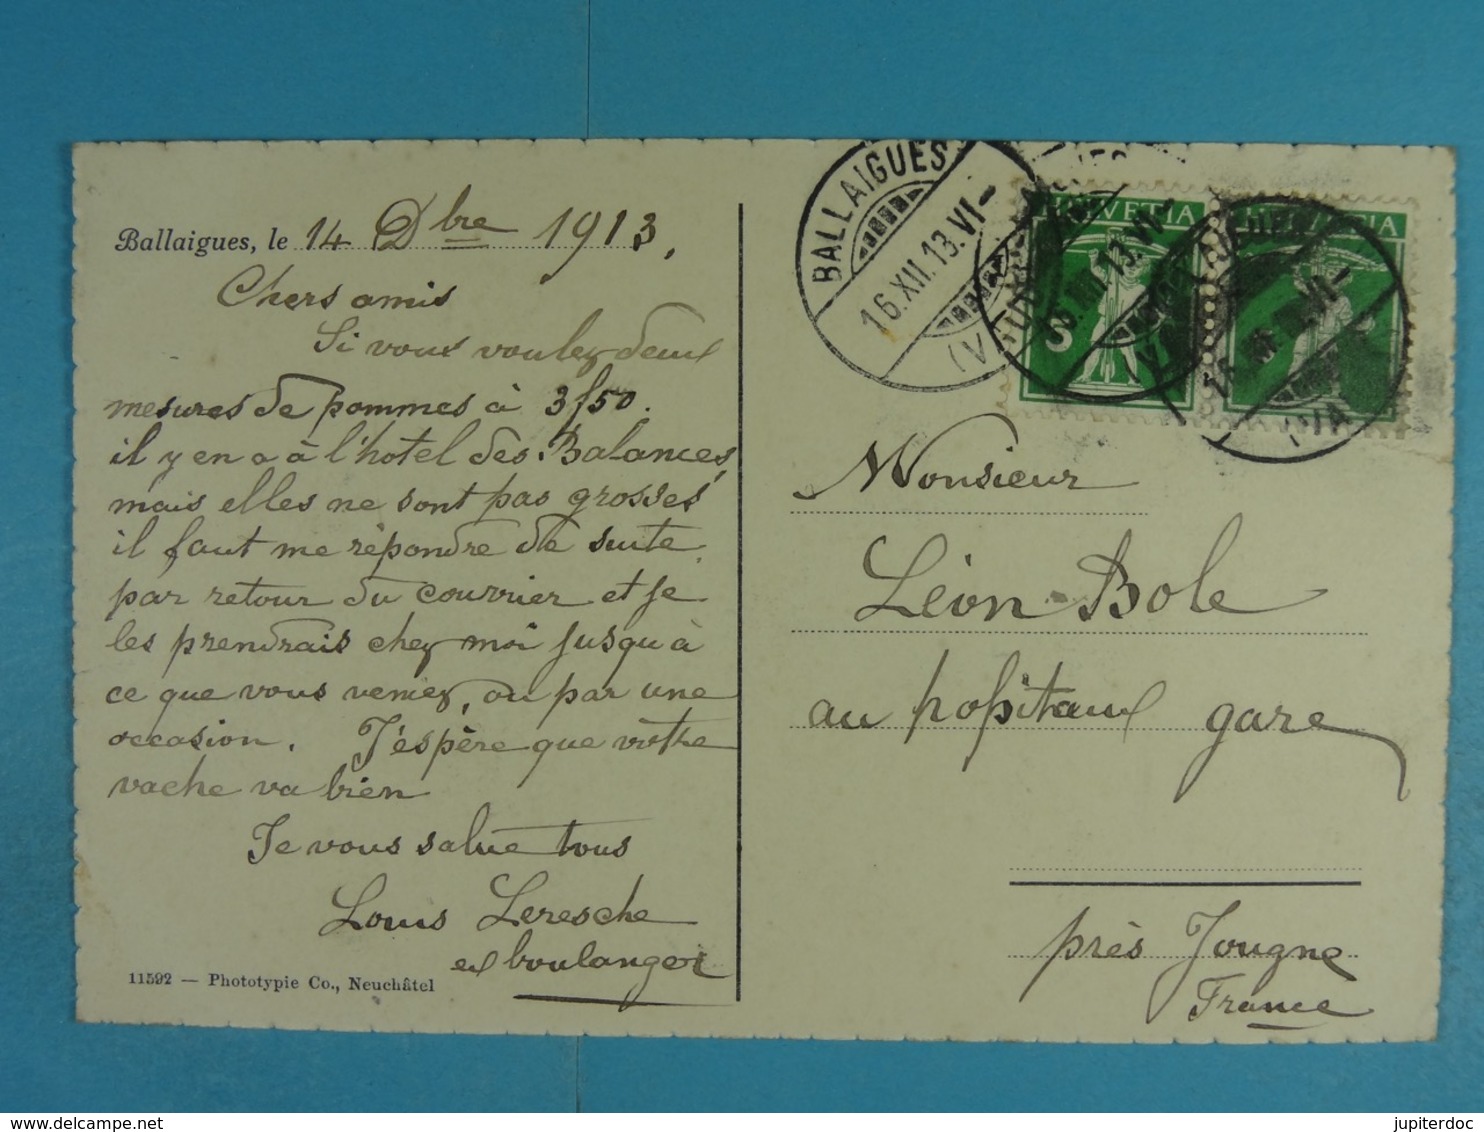 Ballaigues, le 14 Dbre 1913.
Chers amis
Si vous voulez deux
mesures de pommes à 3f50.
il y en a à l'hotel des Balances,
mais elles ne sont pas grosses
il faut me rèpondre de suite
par retour du courrier et je
les prendrais chez moi jusqu'à
ce que vous veniez, ou par une
occasion. J'espère que votre
vache va bien
Je vous salue tous
Louis Leresche
ex boulanger
11592 — Phototypie Co., Neuchâtel
BALLAIGUES
16.XII.13.VI-
(VAUD)
HELVETIA
5
HELVETIA
Monsieur
Léon Bole
au hopitaux gare
près Jougne
France
www.delcampe.net
jupiterdoc